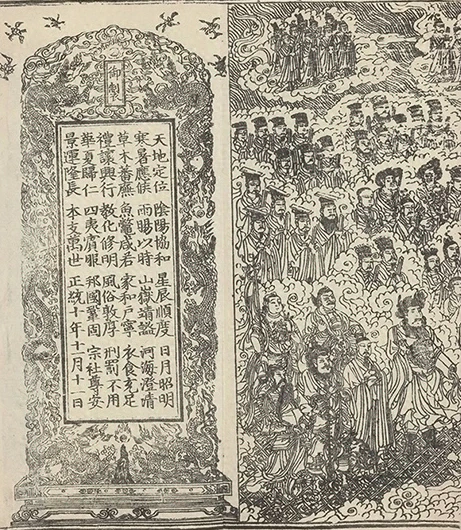 御製
天地定位陰陽協和星辰順度日月昭明
寒暑應候雨暘以時山嶽靖謐河海澄清
草木蕃廡魚鱉咸若家和戶寧衣食充足
禮讓興行教化修明風俗敦厚刑罰不用
華夏歸仁四夷賓服邦國鞏固宗社尊安
景運隆長本支萬世正統十年十一月十一日